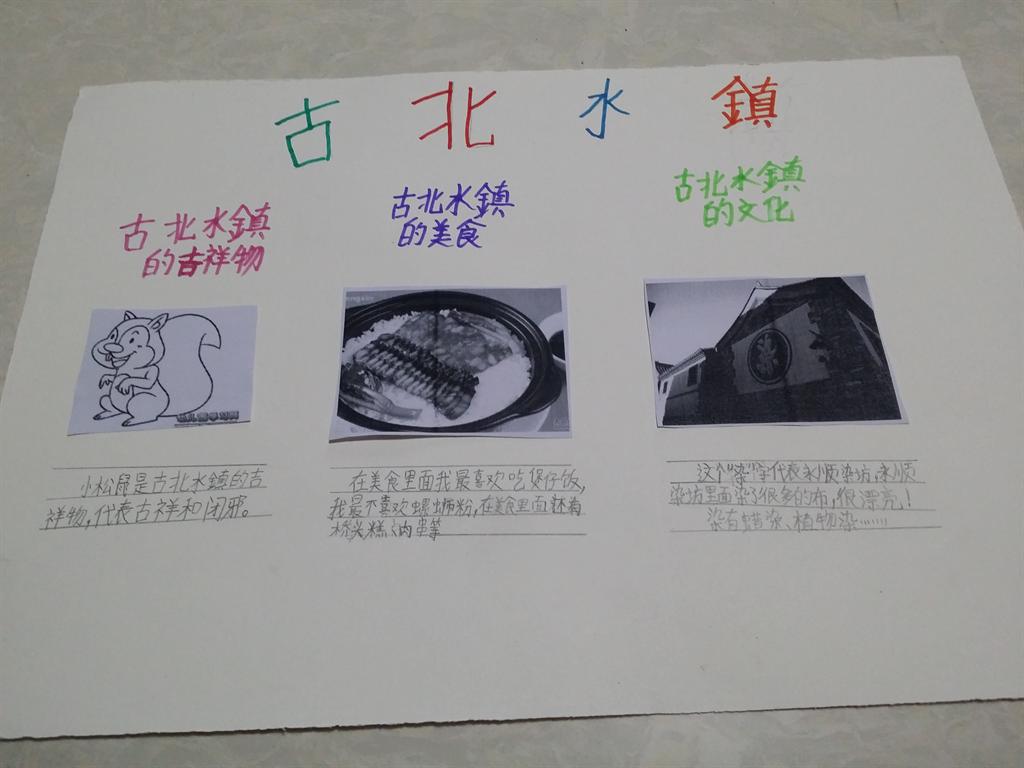 古北水鎮
古北水鎮
的吉祥物
古北水鎮
的美食
古北水鎮
的文化
小松鼠是古北水鎮的吉
祥物,代表吉祥和闭邪。
在美食里面我最喜欢吃煲仔饭,
我最不喜欢螺蛳粉,在美食里面还有
桥头糕、肉串等
这个“染”字代表永顺染坊,永顺
染坊里面染了很多的布,很漂亮!
染有蜡染、植物染……